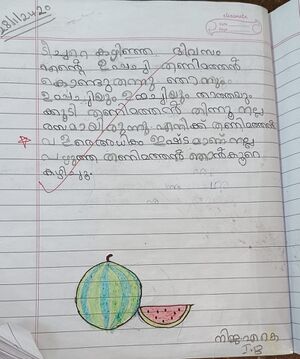 28/1/2420
classmate
Date
Page
ടീച്ചറെ കഴിഞ്ഞ ദിവസം
എന്റെ ഉപ്പച്ചി തണ്ണിമത്തൻ
കൊണ്ടുവന്നു ഞാനും
ഉപ്പച്ചിയും ഉമ്മച്ചിയും
കൂടി തണ്ണിമത്തൻ തിന്നു നല്ല
രസമായിരുന്നു എനിക്ക് തണ്ണിമത്തൻ
ഇഷ്ടമാണ് നല്ല
പഴുത്ത തണ്ണിമത്തൻ ഞാൻ കുറെ
കഴിച്ചു
I.B